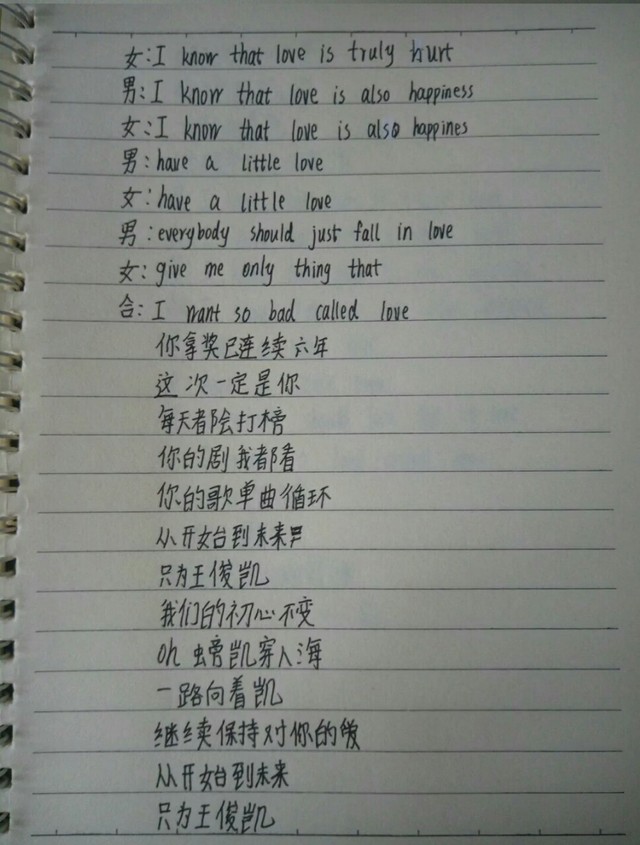 女:I know that love is truly hurt
男:I know that love is also happiness
女:I know that love is also happines
男:have a little love
女:have a little love
男:everybody should just fall in love
女:give me only thing that
合:I want so bad called love
你拿奖已连续六年
这次一定是你
每天都会打榜
你的剧我都看
你的歌单曲循环
从开始到未来
只为王俊凯
我们的初心不变
Oh 螃凯穿人海
一路向着凯
继续保持对你的爱
从开始到未来
只为王俊凯